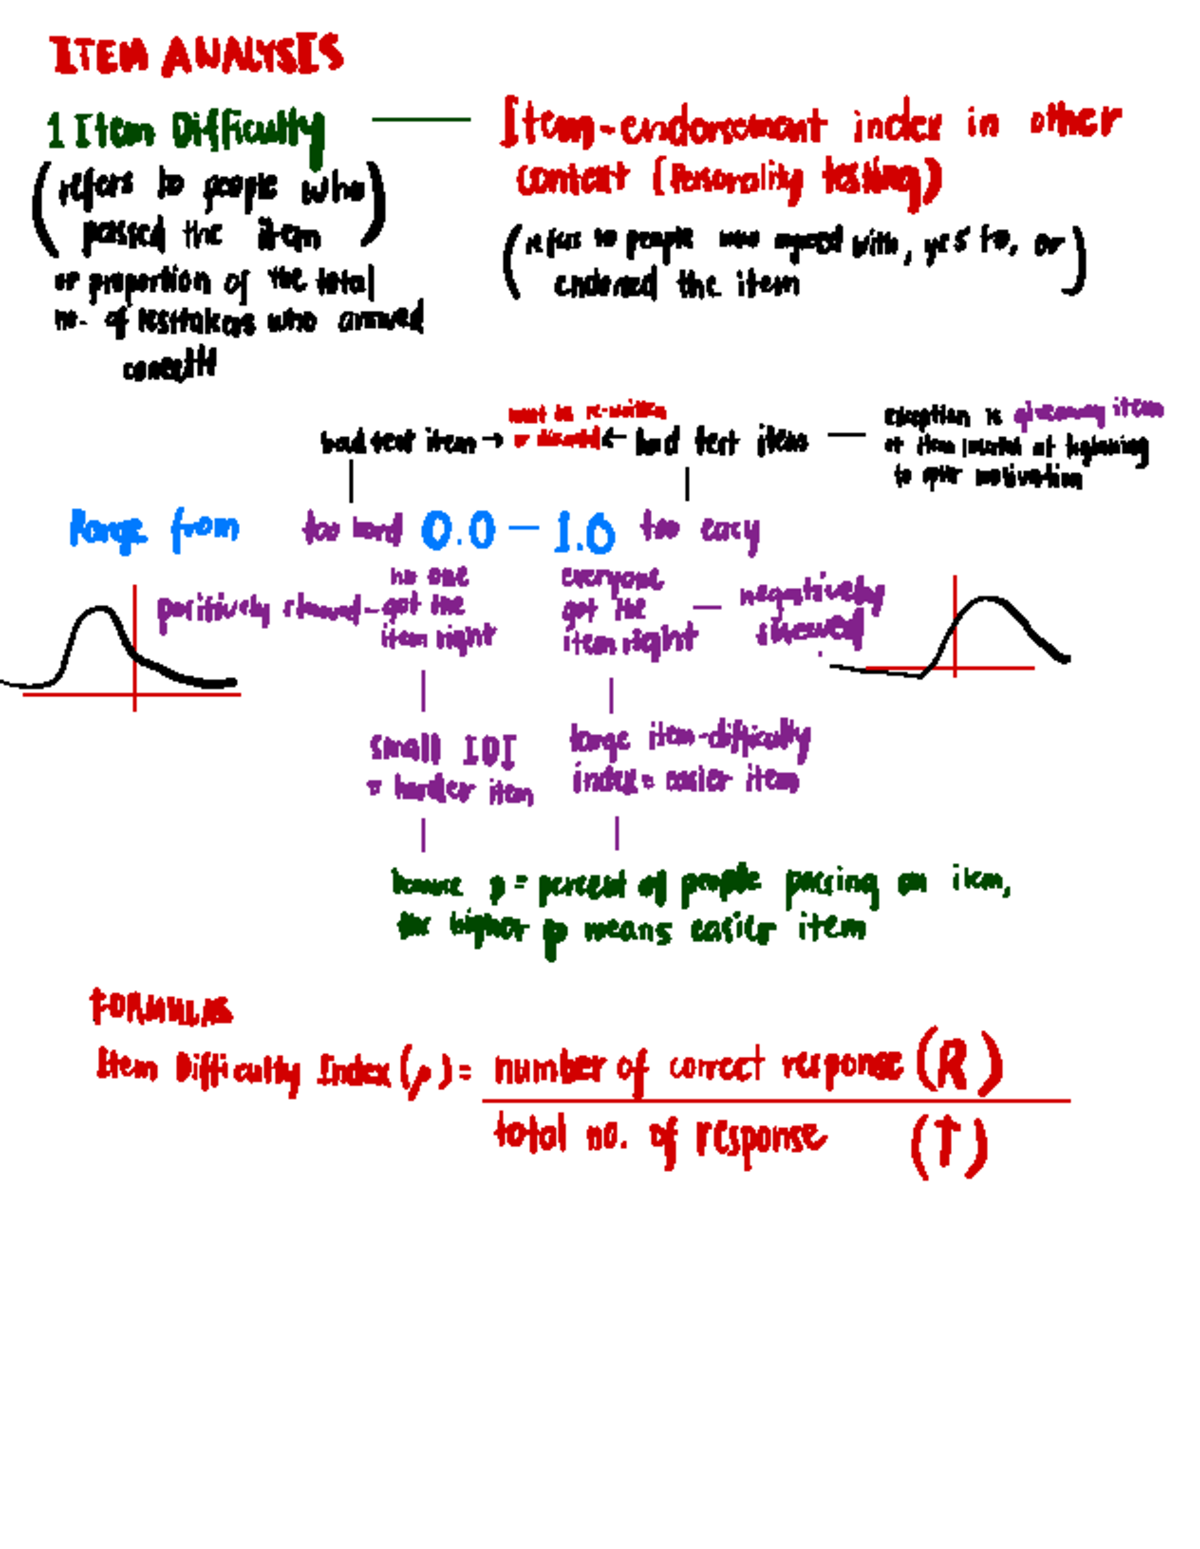 ITEM ANALYSIS
1 Item Difficulty
(refers to people who
passed the item)
or proportion of the total
no. of testtakers who answered
correctly
Item-endorsement index in other
context (Personality testing)
(refers to people who agreed with, yes to, or
endorsed the item)
must be re-written
or discard
bad test item → ← bad test item
exception is giveaway item
or item inserted at beginning
to spur motivation
Range from too hard 0.0 — 1.0 too easy
positively skewed - no one
got the
item right
everyone
got the
item right
— negatively
skewed
small IDI
= harder item
large item-difficulty
index = easier item
because p = percent of people passing an item,
the higher p means easier item
FORMULAS
Item Difficulty Index (p) = number of correct response (R)
total no. of response (T)